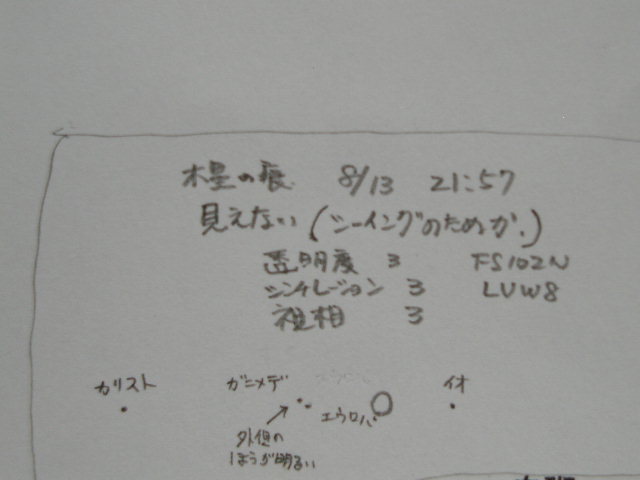 木星の痕 8/13 21:57
見えない(シーイングのためか.)
透明度 3 FS102N
シンチレーション 3 LVW8
視相 3
カリスト ガニメデ イオ
エウロパ
外側の
ほうが明るい